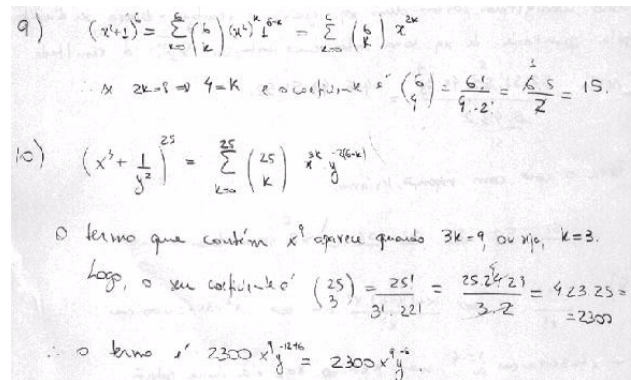 9) (x²+1)⁶ = Σ_{k=0}^{6} (6 k) (x²)^k 1^{6-k} = Σ_{k=0}^{6} (6 k) x^{2k}
∴ 2k=8 ⇒ 4=k e o coeficiente é (6 4) = 6!/4!·2! = 6·5/2 = 15.
10) (x³ + 1/y²)²⁵ = Σ_{k=0}^{25} (25 k) x^{3k} y^{-2(6-k)}
O termo que contém x⁹ aparece quando 3k=9, ou seja, k=3.
Logo, o seu coeficiente é (25 3) = 25!/3!·22! = 25·24·23/3·2 = 4·23·25 =
=2300
∴ o termo é 2300 x⁹ y^{-12+6} = 2300 x⁹ y^{-6}.